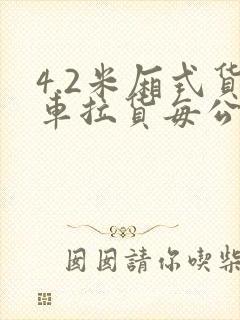 4.2米厢式货
车拉货每公
囡囡請你喫柴